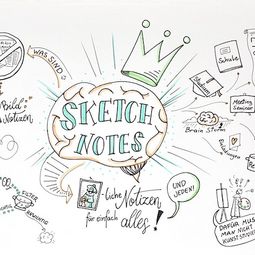 WAS SIND
Bild
Notizen
SKETCH
NOTES
Schule
Meeting
Seminar
Brain Storm
-liche Notizen
für einfach alles!
UND
JEDEN!
DAFÜR MUSS
MAN NICHT
KUNST STUDIER